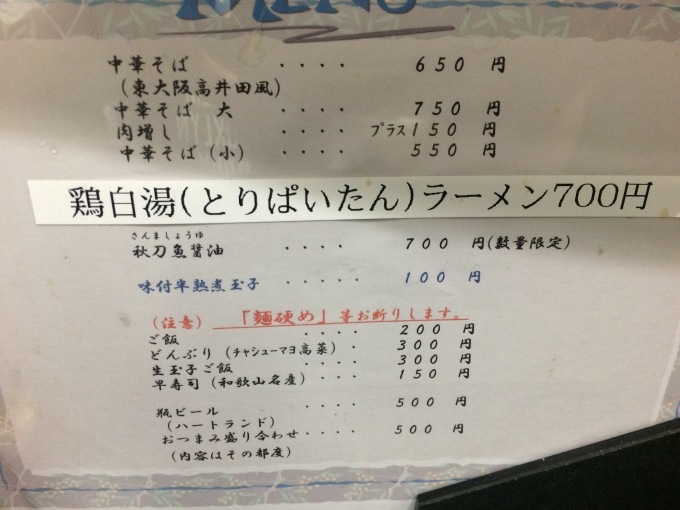 MENU
中華そば ････ 650 円
(東大阪高井田風)
中華そば 大 ････ 750 円
肉増し ････ プラス150 円
中華そば (小) ････ 550 円
鶏白湯(とりぱいたん)ラーメン700円
さんましょうゆ
秋刀魚醤油 ････ 700 円(数量限定)
味付半熟煮玉子 ･････ 100 円
(注意) 「麺硬め」等お断りします。
ご飯 ････ 200 円
どんぶり (チャシューマヨ高菜) ･･ 300 円
生玉子ご飯 ････ 300 円
早寿司 (和歌山名産) ･･･ 150 円
瓶ビール ････ 500 円
(ハートランド)
おつまみ盛り合わせ ････ 500 円
(内容はその都度)